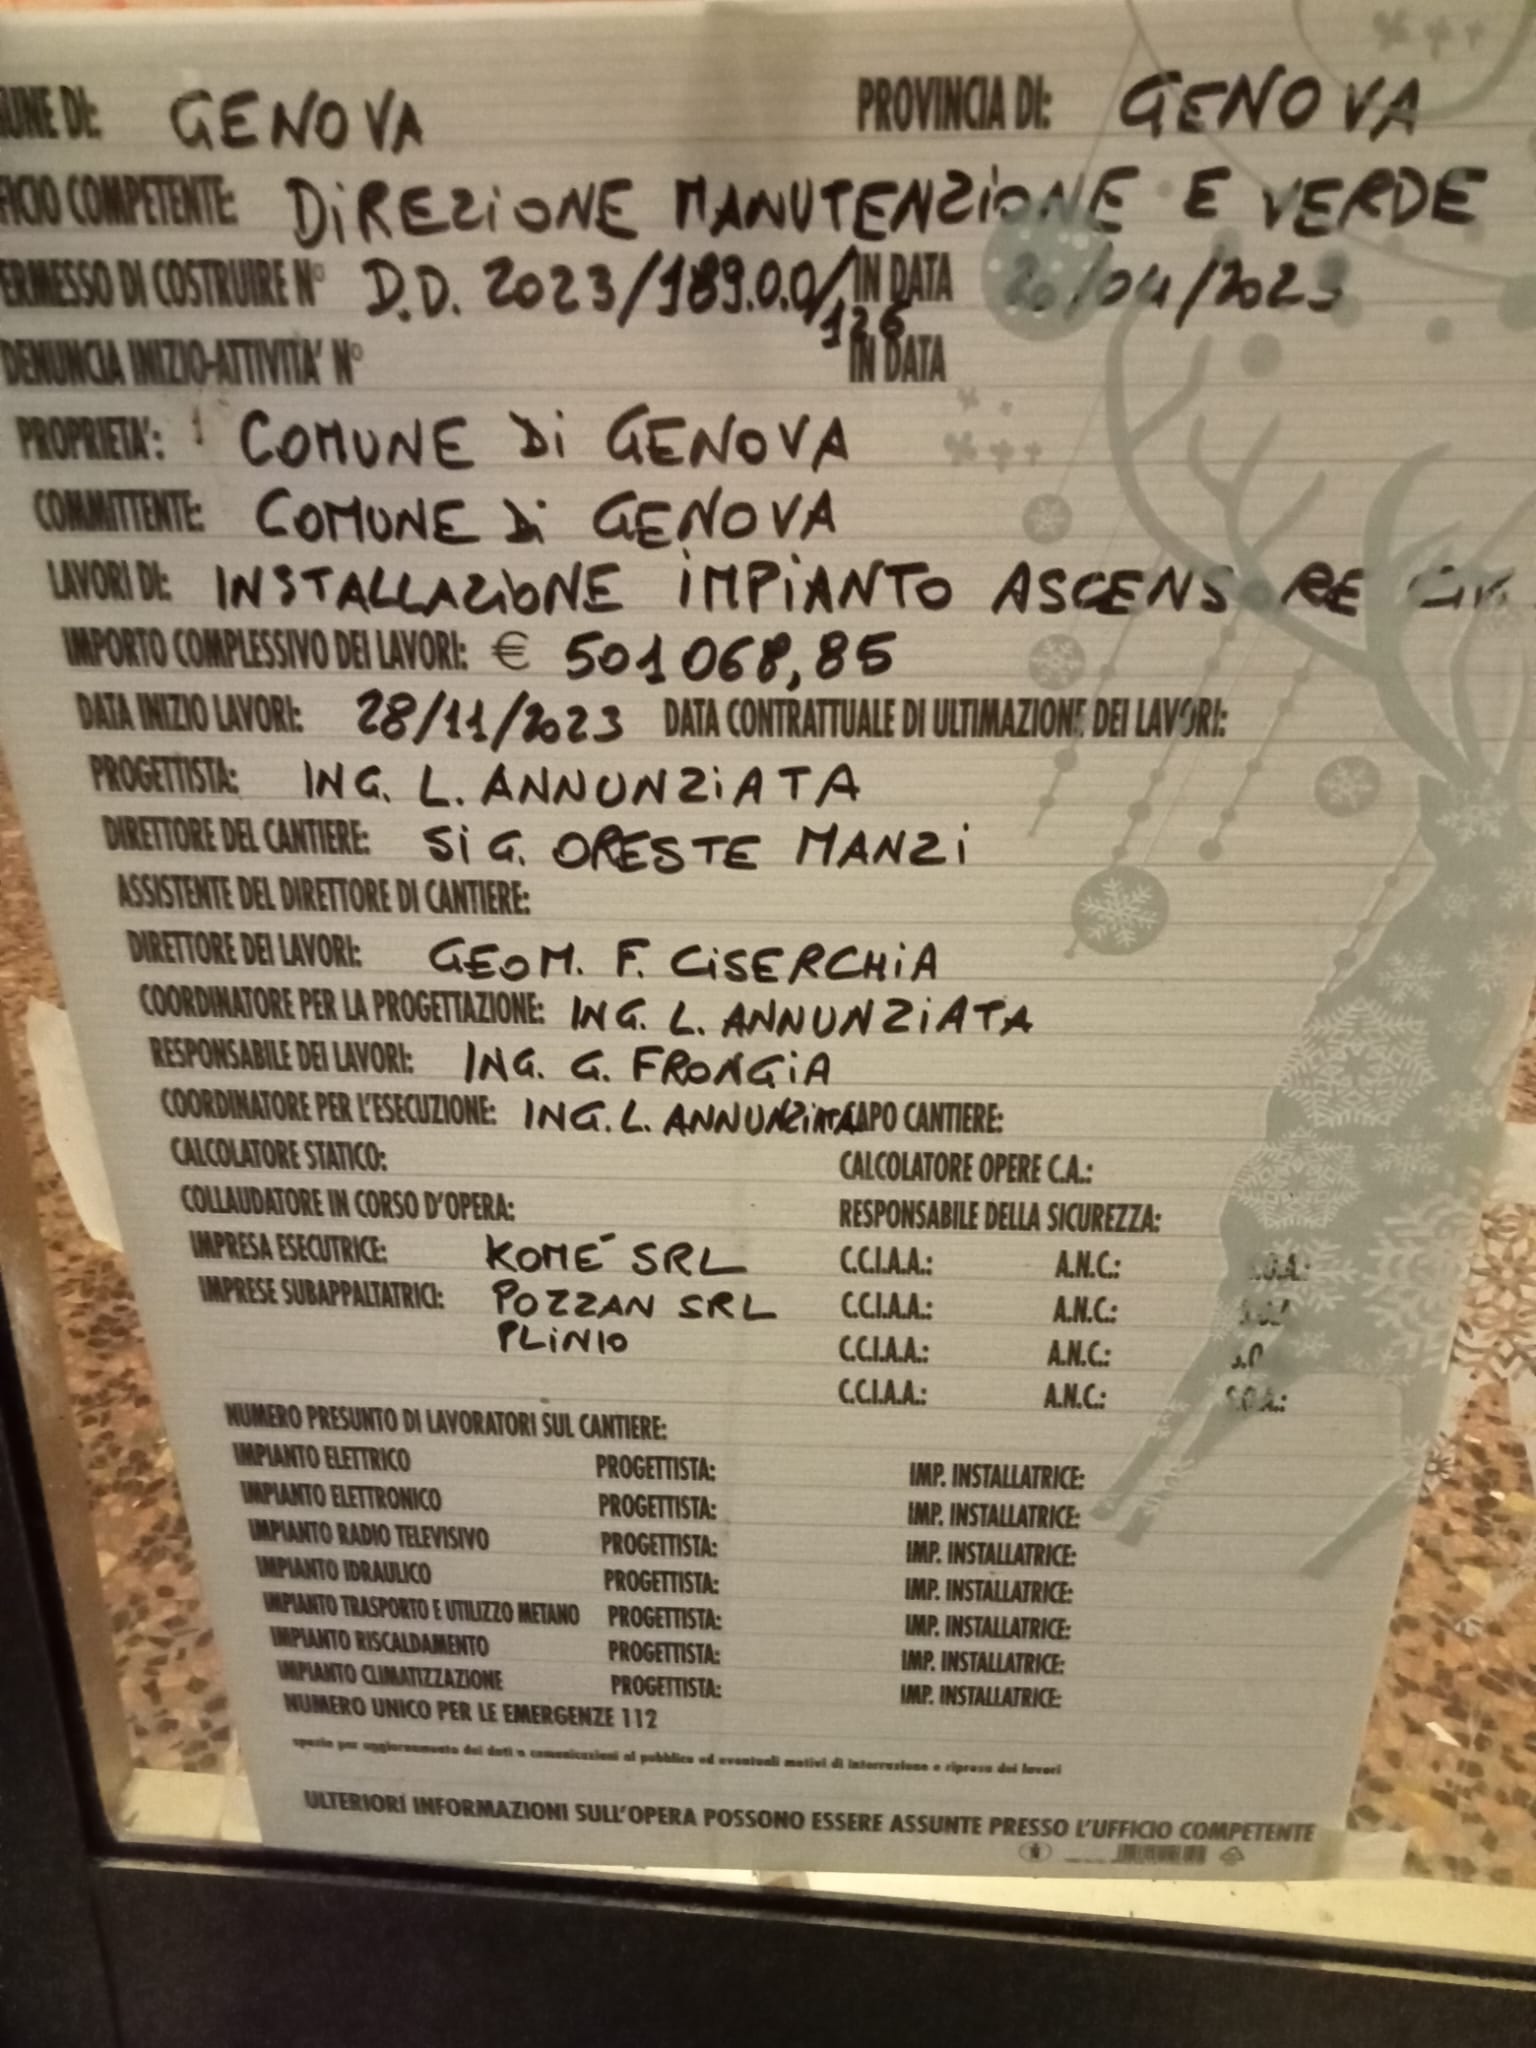 UNE DI: GENOVA PROVINCIA DI: GENOVA
FICIO COMPETENTE: DIREZIONE MANUTENZIONE E VERDE
ERMESSO DI COSTRUIRE N° D.D. 2023/189.0.0/126 IN DATA 20/04/2023
DENUNCIA INIZIO-ATTIVITA' N° IN DATA
PROPRIETA': COMUNE DI GENOVA
COMMITTENTE: COMUNE DI GENOVA
LAVORI DI: INSTALLAZIONE IMPIANTO ASCENSORE
IMPORTO COMPLESSIVO DEI LAVORI: € 501068,85
DATA INIZIO LAVORI: 28/11/2023 DATA CONTRATTUALE DI ULTIMAZIONE DEI LAVORI:
PROGETTISTA: ING. L. ANNUNZIATA
DIRETTORE DEL CANTIERE: SIG. ORESTE MANZI
ASSISTENTE DEL DIRETTORE DI CANTIERE:
DIRETTORE DEI LAVORI: GEOM. F. CISERCHIA
COORDINATORE PER LA PROGETTAZIONE: ING. L. ANNUNZIATA
RESPONSABILE DEI LAVORI: ING. G. FRONGIA
COORDINATORE PER L'ESECUZIONE: ING. L. ANNUNZIATA CAPO CANTIERE:
CALCOLATORE STATICO: CALCOLATORE OPERE C.A.:
COLLAUDATORE IN CORSO D'OPERA: RESPONSABILE DELLA SICUREZZA:
IMPRESA ESECUTRICE: KOMÉ SRL C.C.I.A.A.: A.N.C.: S.O.A.:
IMPRESE SUBAPPALTATRICI: POZZAN SRL C.C.I.A.A.: A.N.C.: S.O.A.
PLINIO C.C.I.A.A.: A.N.C.: S.O.
C.C.I.A.A.: A.N.C.: S.O.A.:
NUMERO PRESUNTO DI LAVORATORI SUL CANTIERE:
IMPIANTO ELETTRICO PROGETTISTA: IMP. INSTALLATRICE:
IMPIANTO ELETTRONICO PROGETTISTA: IMP. INSTALLATRICE:
IMPIANTO RADIO TELEVISIVO PROGETTISTA: IMP. INSTALLATRICE:
IMPIANTO IDRAULICO PROGETTISTA: IMP. INSTALLATRICE:
IMPIANTO TRASPORTO E UTILIZZO METANO PROGETTISTA: IMP. INSTALLATRICE:
IMPIANTO RISCALDAMENTO PROGETTISTA: IMP. INSTALLATRICE:
IMPIANTO CLIMATIZZAZIONE PROGETTISTA: IMP. INSTALLATRICE:
NUMERO UNICO PER LE EMERGENZE 112
spazio per aggiornamento dei dati o comunicazioni al pubblico ed eventuali motivi di interruzione e ripresa dei lavori
ULTERIORI INFORMAZIONI SULL'OPERA POSSONO ESSERE ASSUNTE PRESSO L'UFFICIO COMPETENTE